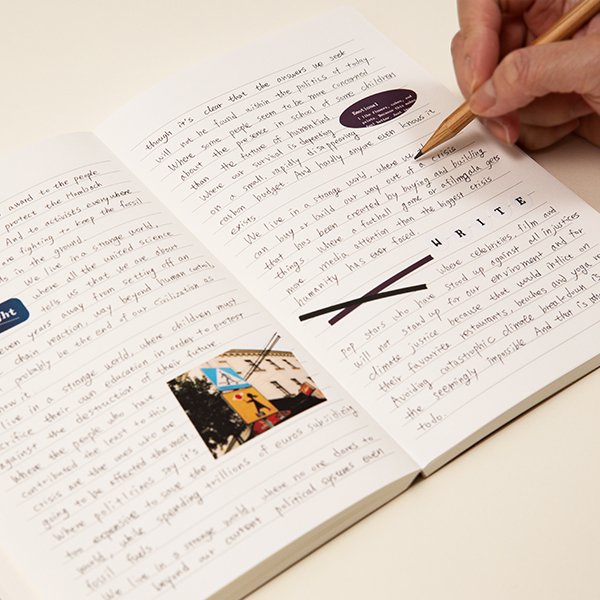 award to the people
protect the Hambach
And to activists everywhere
are fighting to keep the fossil
in the ground.
We live in a strange world,
where all the united science
tells us that we are about
even years away from setting off an
chain reaction, way beyond human
probably be the end of our civilization as
now it.
live in a strange world, where children must
sacrifice their own education in order to protest
against the destruction of their future.
Where the people who have
contributed the least to this
crisis are the ones who are
going to be affected the most.
Where politicians say it's
too expensive to save the
world, while spending trillions of euros subsidizing
fossil fuels.
We live in a strange world, where no one dares to
beyond our current political systems even
though it's clear that the answers we seek
will not be found within the politics of today.
Where some people seem to be more concerned
about the presence in school of some children
than the future of humankind.
Where our survival is depending
on a small, rapidly disappearing
carbon budget. And hardly anyone even knows it
exists
Emotional
I like flowers, cakes, and
We live in a strange world, where we
can buy or build our way out of a crisis
that has been created by buying and building
things. Where a football game or a film gala gets
more media attention than the biggest crisis
humanity has ever faced.
WRITE
Where celebrities, film and
pop stars who have stood up against all injustices
will not stand up for our enviroment and for
climate justice because that would inflict on
their favourite restaurants, beaches and yoga re
Avoiding catastrophic climate breakdown is
the seemingly impossible. And that is
to do.